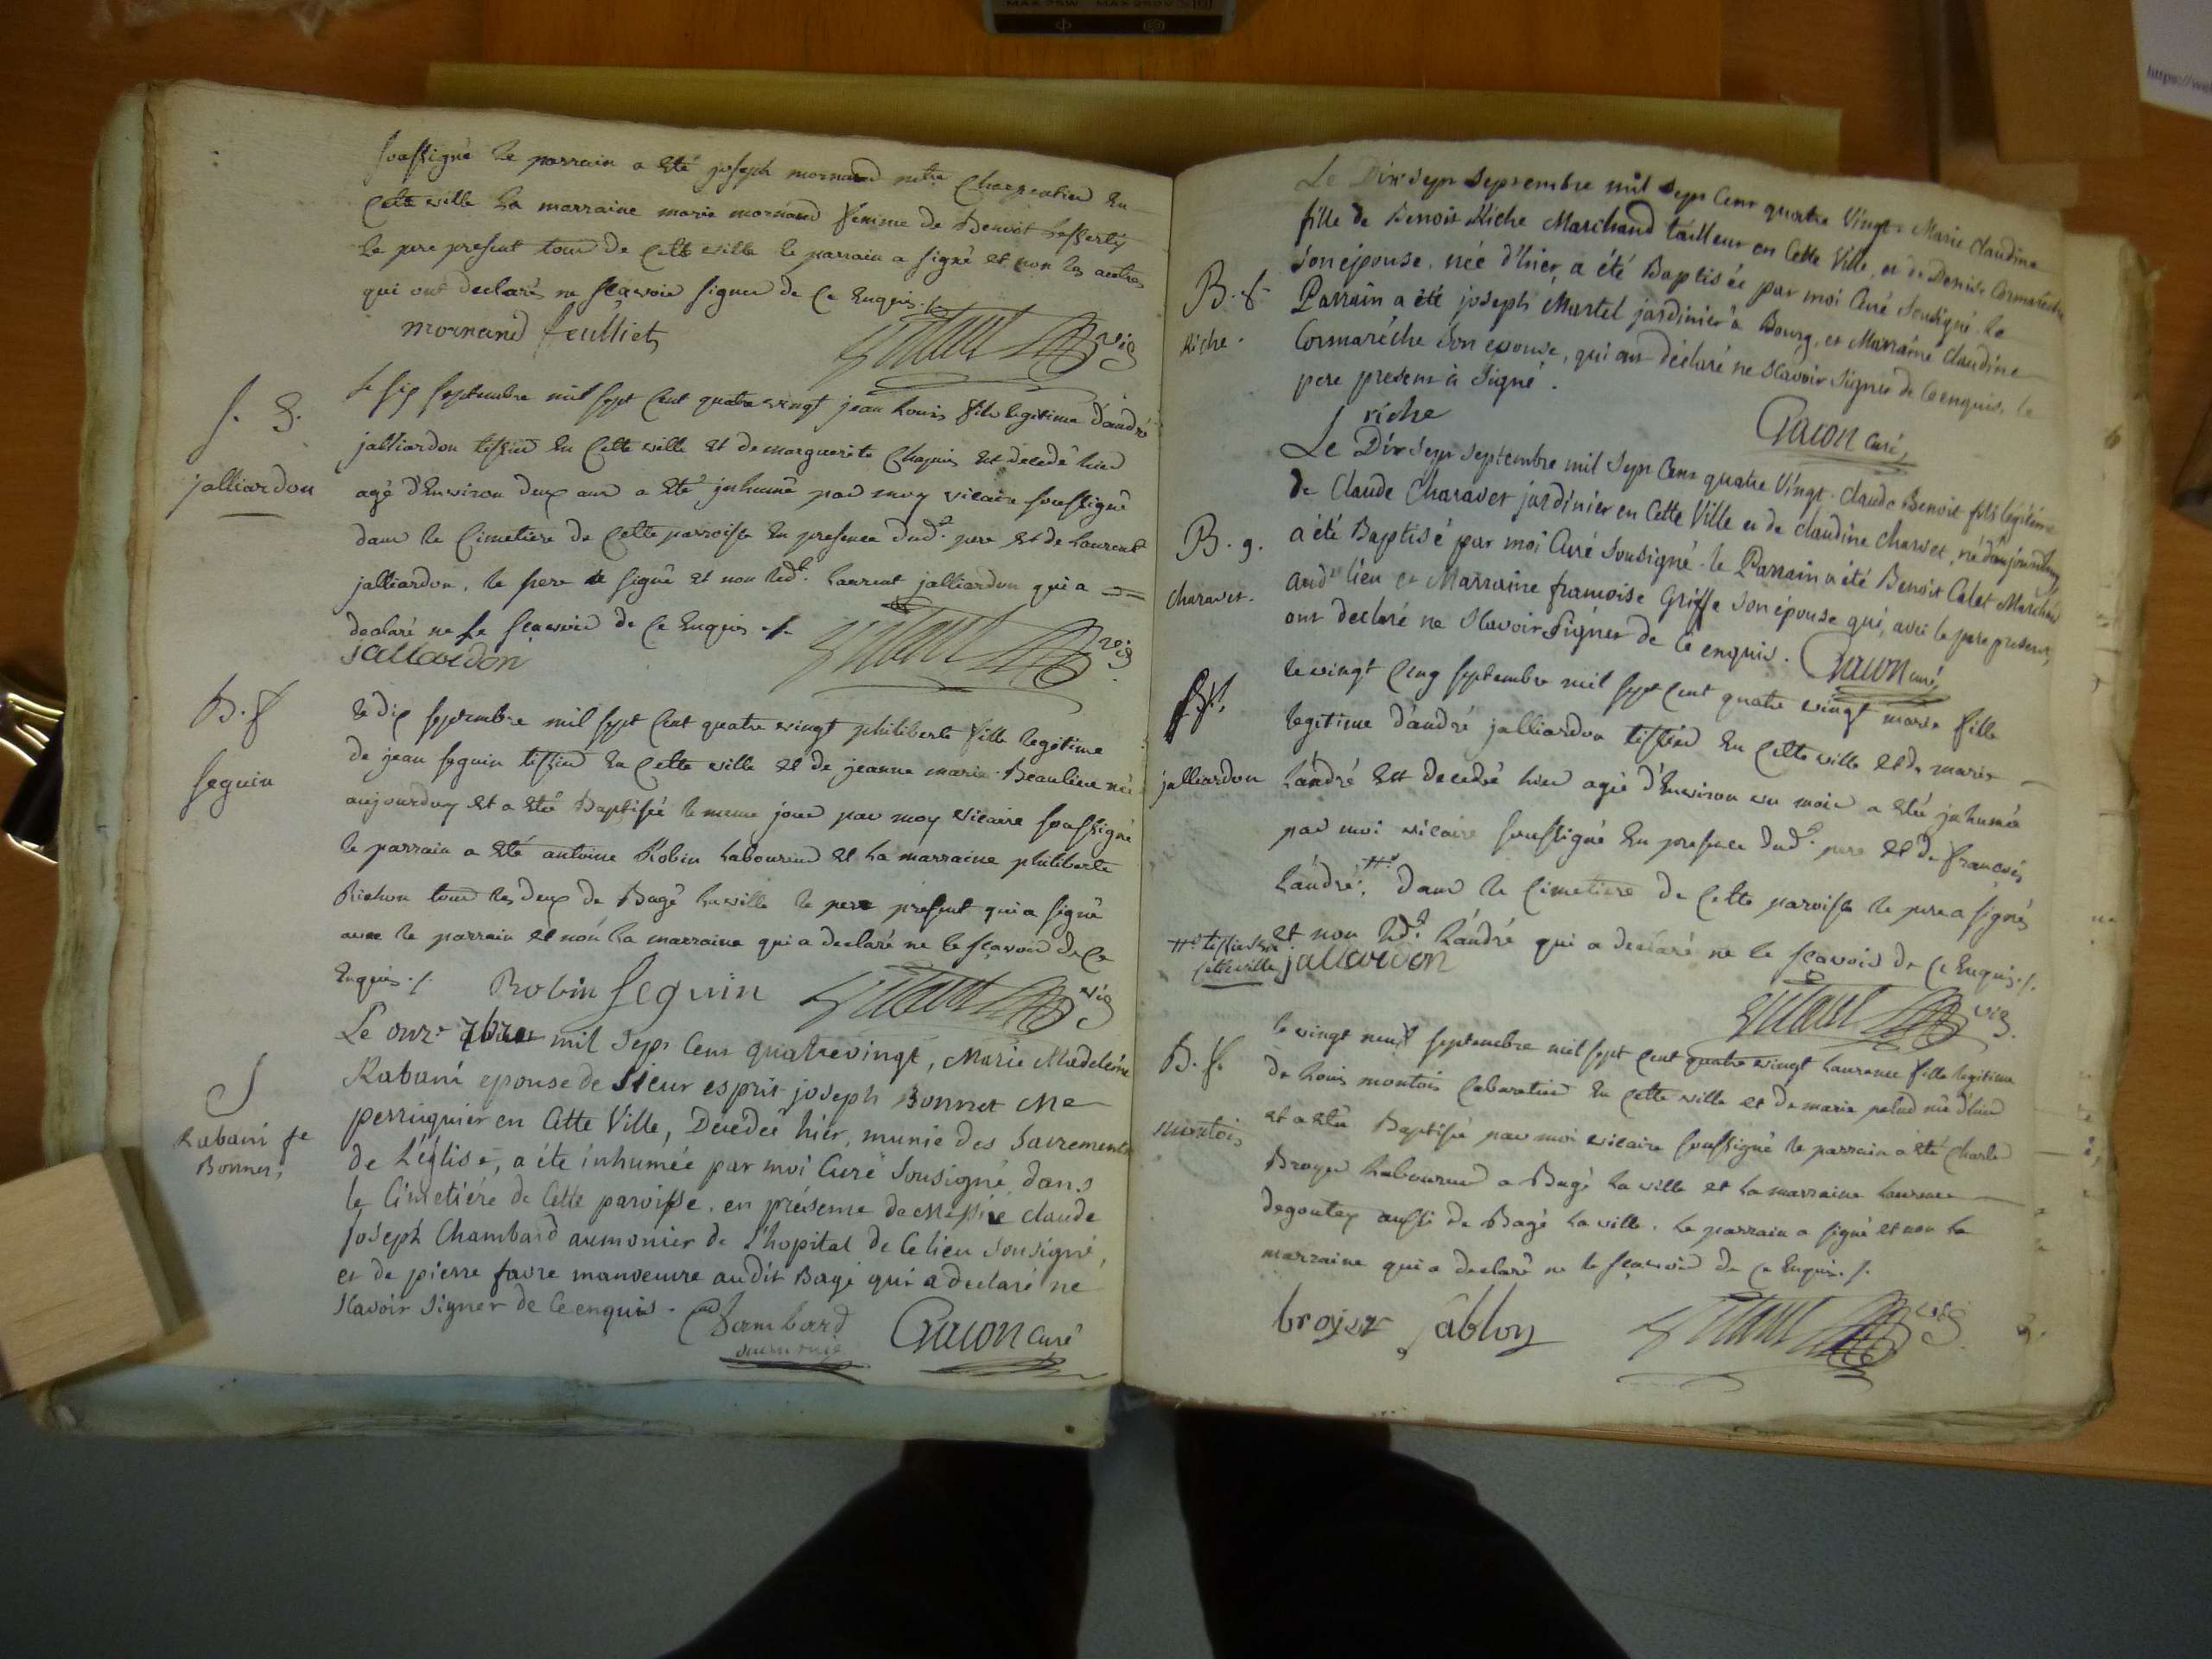 soussigné le parrain a été joseph mornand mtre Charpentier En
Cette ville La marraine marie mornand femme de Benoit
le pere present tous de Cette ville le parrain a signé et non les autres
qui ont declarés ne scavoir signer de Ce Enquis ./.
mornand feulliet vic
S. g.
jalliardon
le six septembre mil sept Cent quatre vingt jean Louis fils legitime d'andré
jalliardon tissier En Cette ville et de marguerite Chapuis est decedé hier
agé d'Environ deux ans a été inhumé par moy vicaire soussigné
dans le Cimetiere de Cette parroisse En presence dud. pere et de Laurent
jalliardon, le pere a signé et non led. Laurent jalliardon qui a
declaré ne le scavoir de Ce Enquis ./.
jalliardon vic
B. f
seguin
le dix septembre mil sept Cent quatre vingt philiberte fille legitime
de jean seguin tissier En Cette ville et de jeanne marie Beaulieu née
aujourduy et a été Baptisée le meme jour par moy vicaire soussigné
le parrain a été antoine Robin Laboureur et La marraine philiberte
Bichon tous les deux de Bagé La ville le pere present qui a signé
avec le parrain et non La marraine qui a declaré ne le scavoir de Ce
Enquis ./. Robin seguin vic
S
Rabani fe
Bonnet
Le onze 7bre mil Sept Cent quatrevingt, Marie Madeleine
Rabani epouse de Sieur esprit joseph Bonnet Me
perruquier en Cette Ville, Decedée hier, munie des Sacrements
de L'église, a été inhumée par moi Curé Sousigné, dans
le Cimetiére de Cette paroisse, en présence de Messire claude
Joseph Chambard aumonier de l'hopital de Ce lieu Sousigné,
et de pierre favre manoeuvre audit Bagé qui a declaré ne
Scavoir Signer de Ce enquis.
Chambard Gacon Curé
aumonier
B. f
Riche.
Le Dix Sept Septembre mil Sept Cent quatre Vingt. Marie Claudine
fille de Benoit Riche Marchand tailleur en Cette Ville, et de Denise Cormaréche
Son épouse, née d'hier, a été Baptisée par moi Curé Sousigné. le
Parrain a été joseph Martel jardinier à Bourg, et Marraine Claudine
Cormaréche Son epouse, qui ont déclaré ne Scavoir Signer de Ce enquis, le
pere present a Signé.
riche Gacon Curé
B. g.
Charavet.
Le Dix Sept Septembre mil Sept Cent quatre Vingt. Claude Benoit fils légitime
de Claude Charavet jardinier en Cette Ville et de claudine Charvet, né d'aujourdhuy
a été Baptisé par moi Curé Sousigné. le Parrain a été Benoit Calet Marchand
aud. lieu et Marraine francoise Griffe Son épouse qui, avec le pere present,
ont declaré ne Scavoir Signer de Ce enquis. Gacon Curé
S. f.
jalliardon
le vingt Cinq septembre mil sept Cent quatre vingt marie fille
legitime d'andré jalliardon tissier En Cette ville et de marie
Landré est decedée hier agée d'Environ un mois a été inhumée
par moi vicaire soussigné En presence dud. pere et de francois
Landré, # dans le Cimetiere de Cette paroisse le pere a signés
et non led. Landré qui a declaré ne le scavoir de Ce Enquis ./.
# tissier En
Cette ville
jalliardon vic
B. f.
montois
le vingt neuf septembre mil sept Cent quatre vingt Laurence fille legitime
de Louis montois Cabaretier En Cette ville et de marie palud née d'hier
et a été Baptisée par moi vicaire soussigné le parrain a été Charle
Broyer Laboureur a Bagé La ville et La marraine Laurence
degoutey aussi de Bagé La ville. Le parrain a signé et non La
marraine qui a declaré ne le scavoir de Ce Enquis ./.
broyer sablon vic